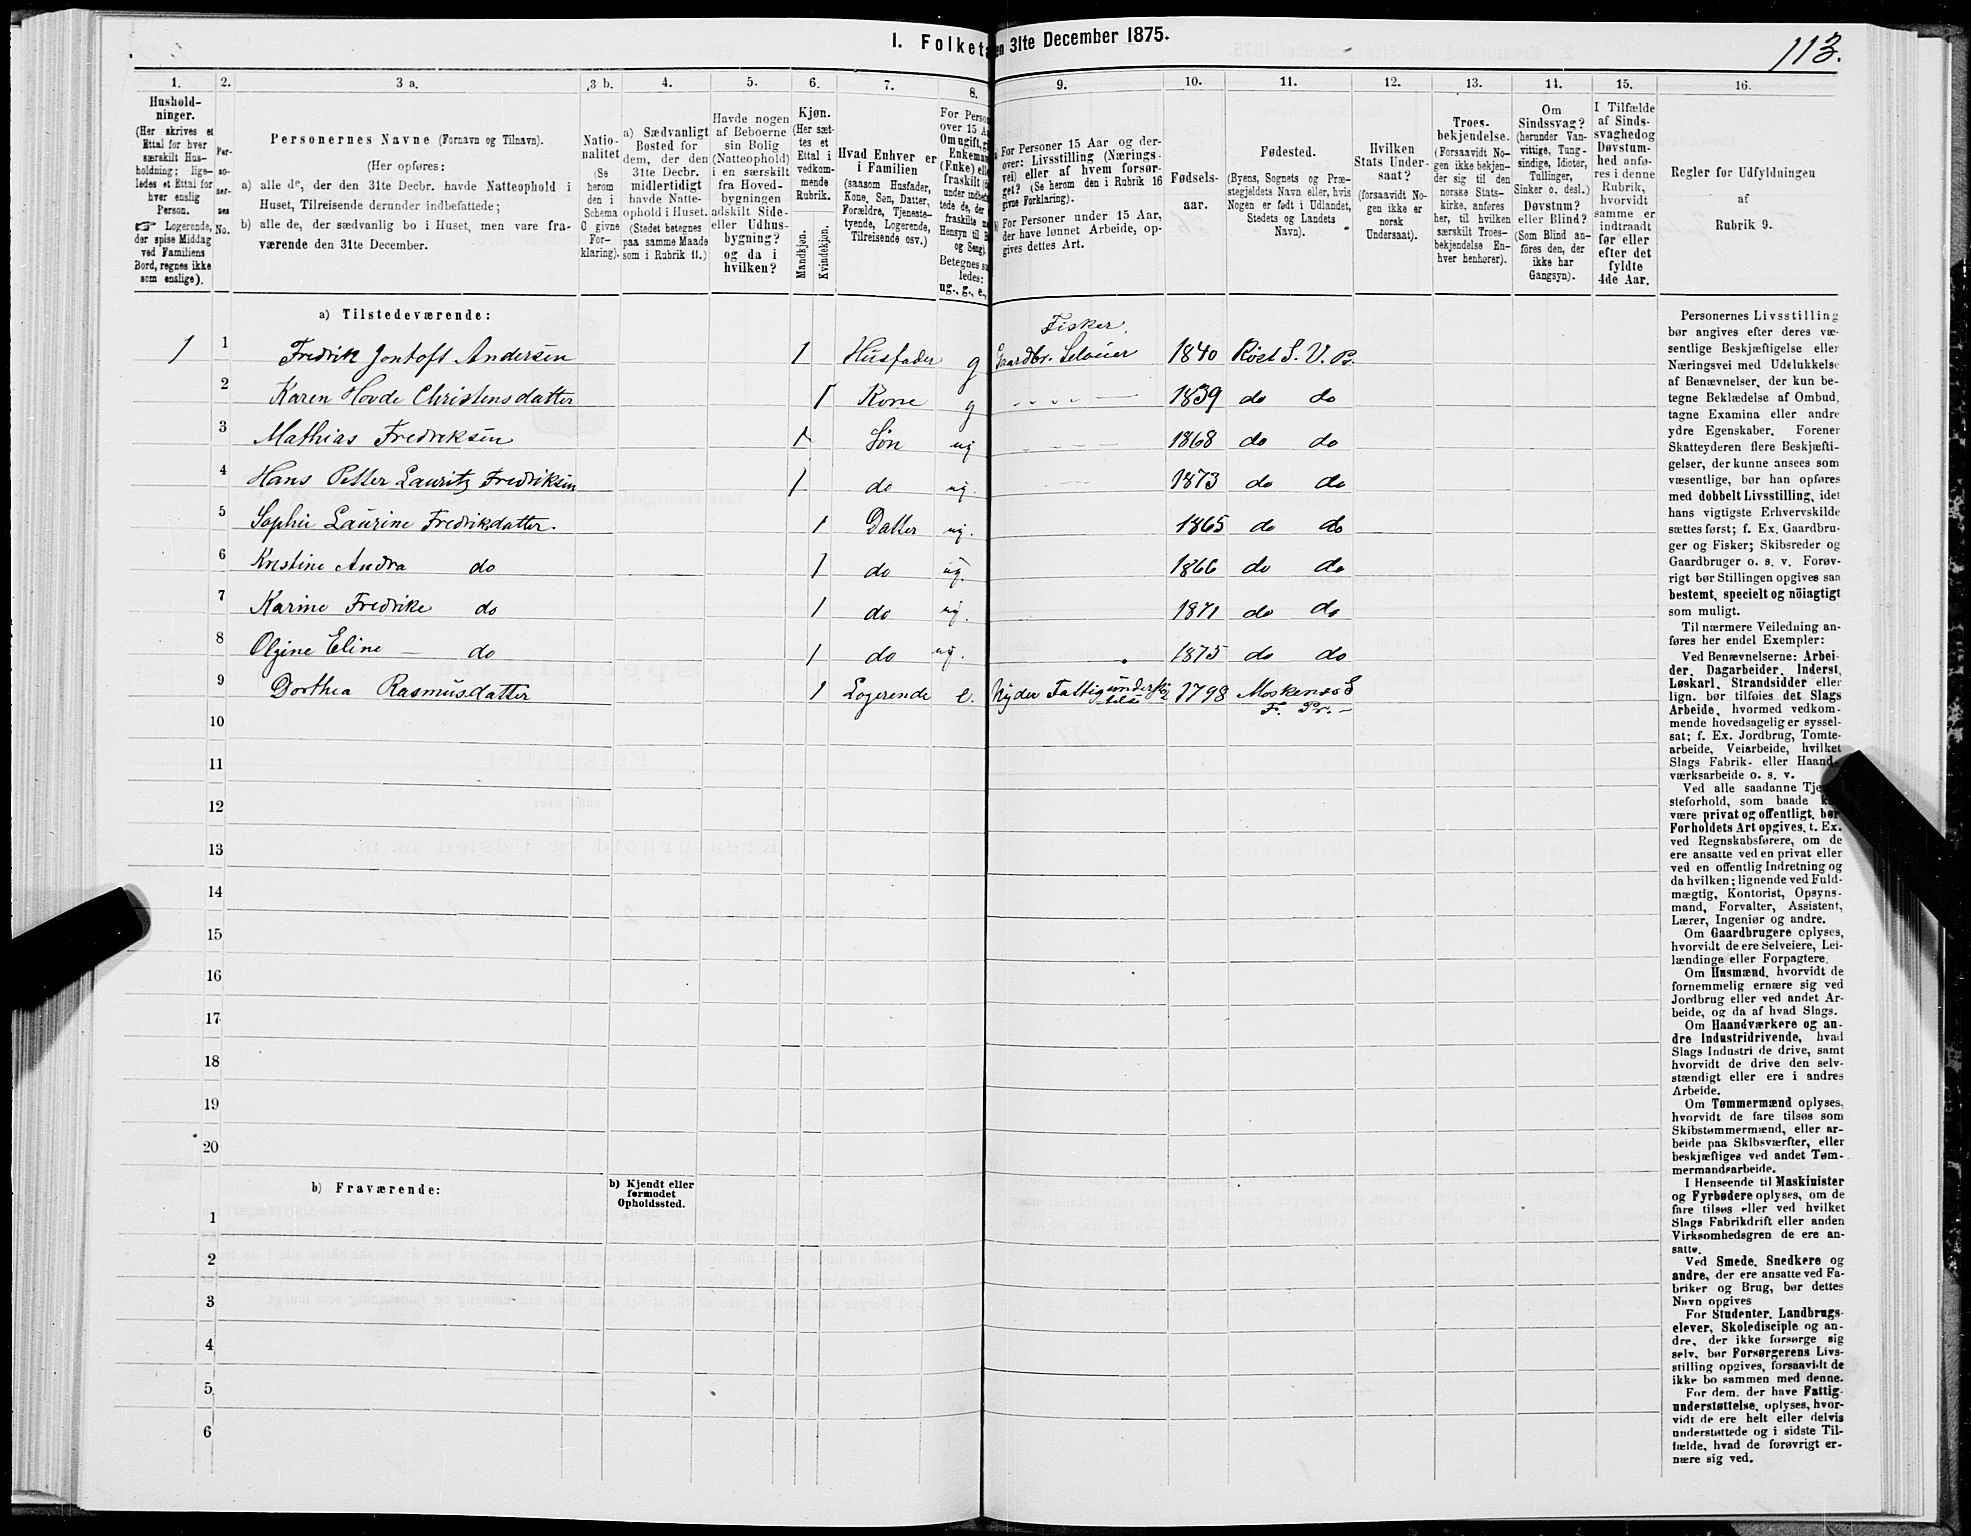 I. Folketa
en 31te December 1875.
113.
1. 2. 3 a. 3 b. 4. 5. 6. 7. 8. 9. 10. 11. 12. 13. 14. 15. 16.
Hushold-
ninger.
(Her skrives et
Ettal for hver
særskilt Hus-
holdning; lige-
ledes et Ettal for
hver enslig
Person.
☞ Logerende,
der spise Middag
ved Familiens
Bord, regnes ikke
som enslige).
Per-
so-
ner-
nes
No.
Personernes Navne (Fornavn og Tilnavn).
(Her opføres:
a) alle de, der den 31te Decbr. havde Natteophold i
Huset, Tilreisende derunder indbefattede;
b) alle de, der sædvanlig bo i Huset, men vare fra-
værende den 31te December.
Natio-
nalitet
(Se
herom
den i
Schema
C givne
For-
klaring).
a) Sædvanligt
Bosted for
dem, der den
31te Decbr.
midlertidigt
havde Natte-
ophold i Huset.
(Stedet betegnes
paa samme Maade
som i Rubrik 11.)
Havde nogen
af Beboerne
sin Bolig
(Natteophold)
i en særskilt
fra Hoved-
bygningen
adskilt Side-
eller Udhus-
bygning?
og da i
hvilken?
Kjøn.
(Her sæt-
tes et
Ettal i
vedkom-
mende
Rubrik.
Mandkjøn.
Kvindekjøn.
Hvad Enhver er
i Familien
(saasom Husfader,
Kone, Søn, Datter,
Forældre, Tjeneste-
tyende, Logerende,
Tilreisende osv.)
For Perso
over 15 A
Om ugift, gi
Enkeman
(Enke) elle
fraskilt (
under indbef
tede de, de
fraskilte m
Hensyn til B
og Seng).
Betegnes sa
ledes:
ug., g., e.,
For Personer 15 Aar og der-
over: Livsstilling (Nærings-
vei) eller af hvem forsør-
get? (Se herom den i Rubrik 16
givne Forklaring).
b) For Personer under 15 Aar,
der have lønnet Arbeide, op-
gives dettes Art.
Fødsels-
aar.
Fødested.
(Byens, Sognets og Præ-
stegjeldets Navn eller, hvis
Nogen er født i Udlandet,
Stedets og Landets
Navn).
Hvilken
Stats Under-
saat?
(forsaavidt No-
gen ikke er
norsk
Undersaat).
Troes-
bekjendelse.
(Forsaavidt No-
gen ikke bekjen-
der sig til den
norske Stats-
kirke, anføres
her, til hvilken
særskilt Troes-
bekjendelse En-
hver henhører).
Om
Sindssvag?
(herunder Van-
vittige, Tung-
sindige, Idioter,
Tullinger,
Sinker o. desl.)
Døvstum?
eller Blind?
(Som Blind an-
føres den, der
ikke har
Gangsyn).
I Tilfælde
af Sinds-
svaghedog
Døvstum-
hed anfø-
res i denne
Rubrik,
hvorvidt
samme er
indtraadt
før eller
efter det
fyldte
4de Aar.
Regler for Udfyldningen
af
Rubrik 9.
a) Tilstedeværende:
Fisker.
1 1 Fredrik Jontoft Andersen 1 Husfader g Gaardbr. Selveier 1840 Røst S. V. Pr.
2 Karen Hovde Christensdatter 1 Kone g 1839 do do
3 Mathias Fredriksen 1 Søn ug 1868 do do
4 Hans Petter Lauritz Fredriksen 1 do ug. 1873 do do
5 Sophie Laurine Fredriksdatter. 1 Datter ug. 1865 do do
6 Kristine Andra do 1 do ug. 1866 do do
7 Karine Fredrike do 1 do ug. 1871 do do
8 Olgine Eline — do 1 do ug. 1875 do do
9 Dorthea Rasmusdatter 1 Logerende e. Nyder Fattigunderstøttelse 1798 Moskenes S
F. Pr. -
10
11
12
13
14
15
16
17
18
19
20
b) Fraværende:
b) Kjendt eller
formodet
Opholdssted.
1
2
3
4
5
6
Personernes Livsstilling
bør angives efter deres væ-
sentlige Beskjæftigelse eller
Næringsvei med Udelukkelse
af Benævnelser, der kun be-
tegne Beklædelse af Ombud,
tagne Examina eller andre
ydre Egenskaber. Forener
Skatteyderen flere Beskjæfti-
gelser, der kunne ansees som
væsentlige, bør han opføres
med dobbelt Livsstilling, idet
hans vigtigste Erhvervskilde
sættes først; f. Ex. Gaardbru-
ger og Fisker; Skibsreder og
Gaardbruger o. s. v. Forøv-
rigt bør Stillingen opgives saa
bestemt, specielt og nöiagtigt
som muligt.
Til nærmere Veiledning an-
føres her endel Exempler:
Ved Benævnelserne: Arbei-
der, Dagarbeider, Inderst,
Løskarl, Strandsidder eller
lign. bør tilføies det Slags
Arbeide, hvormed vedkom-
mende hovedsagelig er syssel-
sat; f. Ex. Jordbrug, Tomte-
arbeide, Veiarbeide, hvilket
Slags Fabrik- eller Haand-
værksarbeide o. s. v.
Ved alle saadanne Tje
steforhold, som baade k
være privat og offentligt, bør
Forholdets Art opgives, t. Ex.
ved Regnskabsførere, om de
ere ansatte ved en privat eller
ved en offentlig Indretning og
da hvilken; lignende ved Fuld-
mægtig, Kontorist, Opsyns-
mand, Forvalter, Assistent,
Lærer, Ingeniør og andre.
Om Gaardbrugere oplyses,
hvorvidt de ere Selveiere, Lei-
lændinge eller Forpagtere.
Om Husmænd, hvorvidt de
fornemmelig ernære sig ved
Jordbrug eller ved andet Ar-
beide, og da af hvad Slags.
Om Haandværkere og an-
dre Industridrivende, hvad
Slags Industri de drive, samt
hvorvidt de drive den selv-
stændigt eller ere i andres
Arbeide.
Om Tømmermænd oplyses,
hvorvidt de fare tilsøs som
Skibstømmermænd, eller ar-
beide paa Skibsværfter, eller
beskjæftiges ved andet Tøm-
mermandsarbeide.
I Henseende til Maskinister
og Fyrbødere oplyses, om de
fare tilsøs eller ved hvilket
Slags Fabrikdrift eller anden
Virksomhedsgren de ere an-
satte.
Ved Smede, Snedkere og
andre, der ere ansatte ved Fa-
briker og Brug, bør dettes
Navn opgives
For Studenter, Landbrugs-
elever, Skoledisciple og an-
dre, der ikke forsørge sig
selv, bør Forsørgerens Livs-
stilling opgives, forsaavidt de
ikke bo sammen med denne.
For dem, der have Fattig-
understøttelse, oplyses, hvor-
vidt de ere helt eller delvis
understøttede og i sidste Til-
fælde, hvad de forøvrigt er-
nære sig ved.